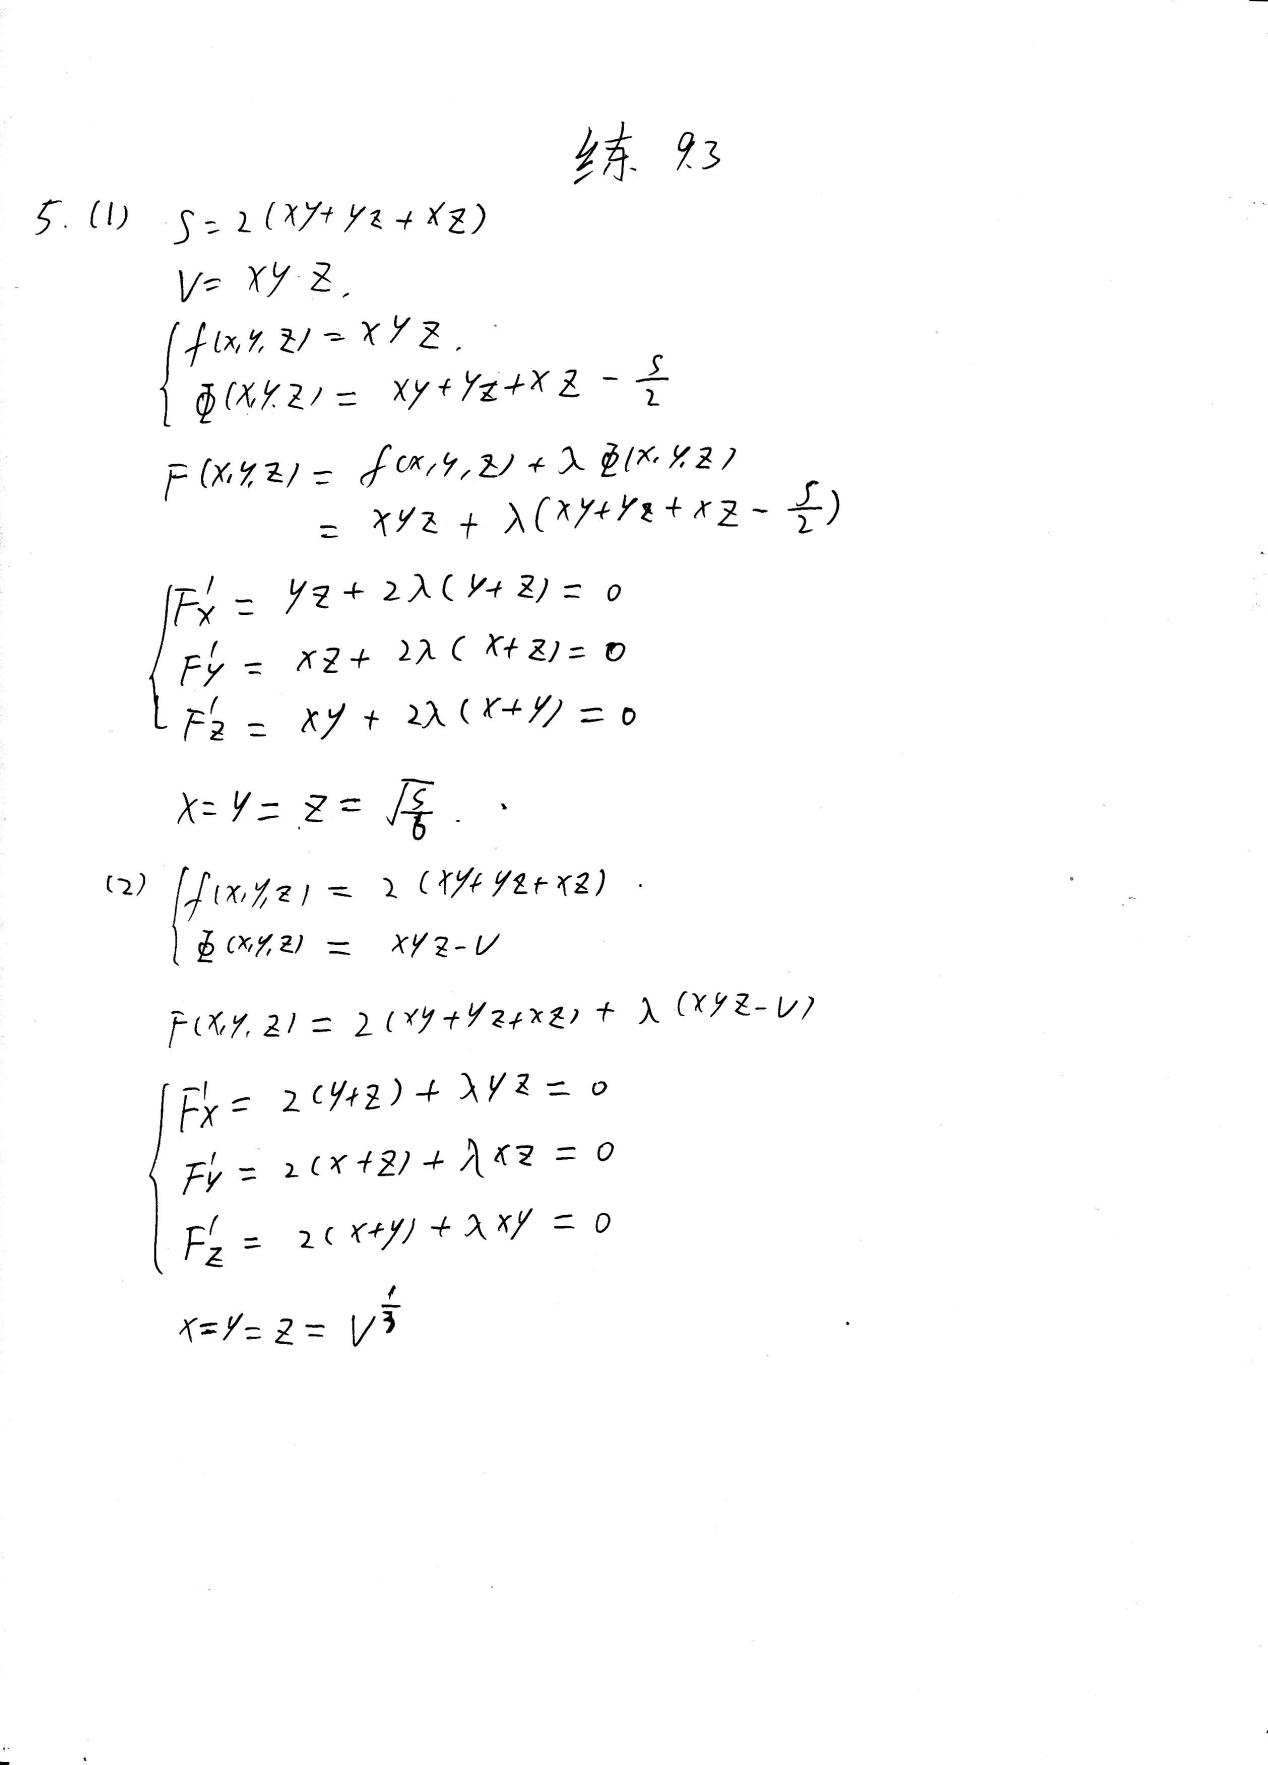 练 9.3
5. (1) S = 2(xy + yz + xz)
V = xyz.
{ f(x,y,z) = xyz.
Φ(x,y,z) = xy + yz + xz - S/2
F(x,y,z) = f(x,y,z) + λΦ(x,y,z)
= xyz + λ(xy + yz + xz - S/2)
{ F'x = yz + 2λ(y+z) = 0
F'y = xz + 2λ(x+z) = 0
F'z = xy + 2λ(x+y) = 0
x = y = z = √(S/6).
(2) { f(x,y,z) = 2(xy + yz + xz).
Φ(x,y,z) = xyz - V
F(x,y,z) = 2(xy + yz + xz) + λ(xyz - V)
{ F'x = 2(y+z) + λyz = 0
F'y = 2(x+z) + λxz = 0
F'z = 2(x+y) + λxy = 0
x = y = z = V^(1/3)